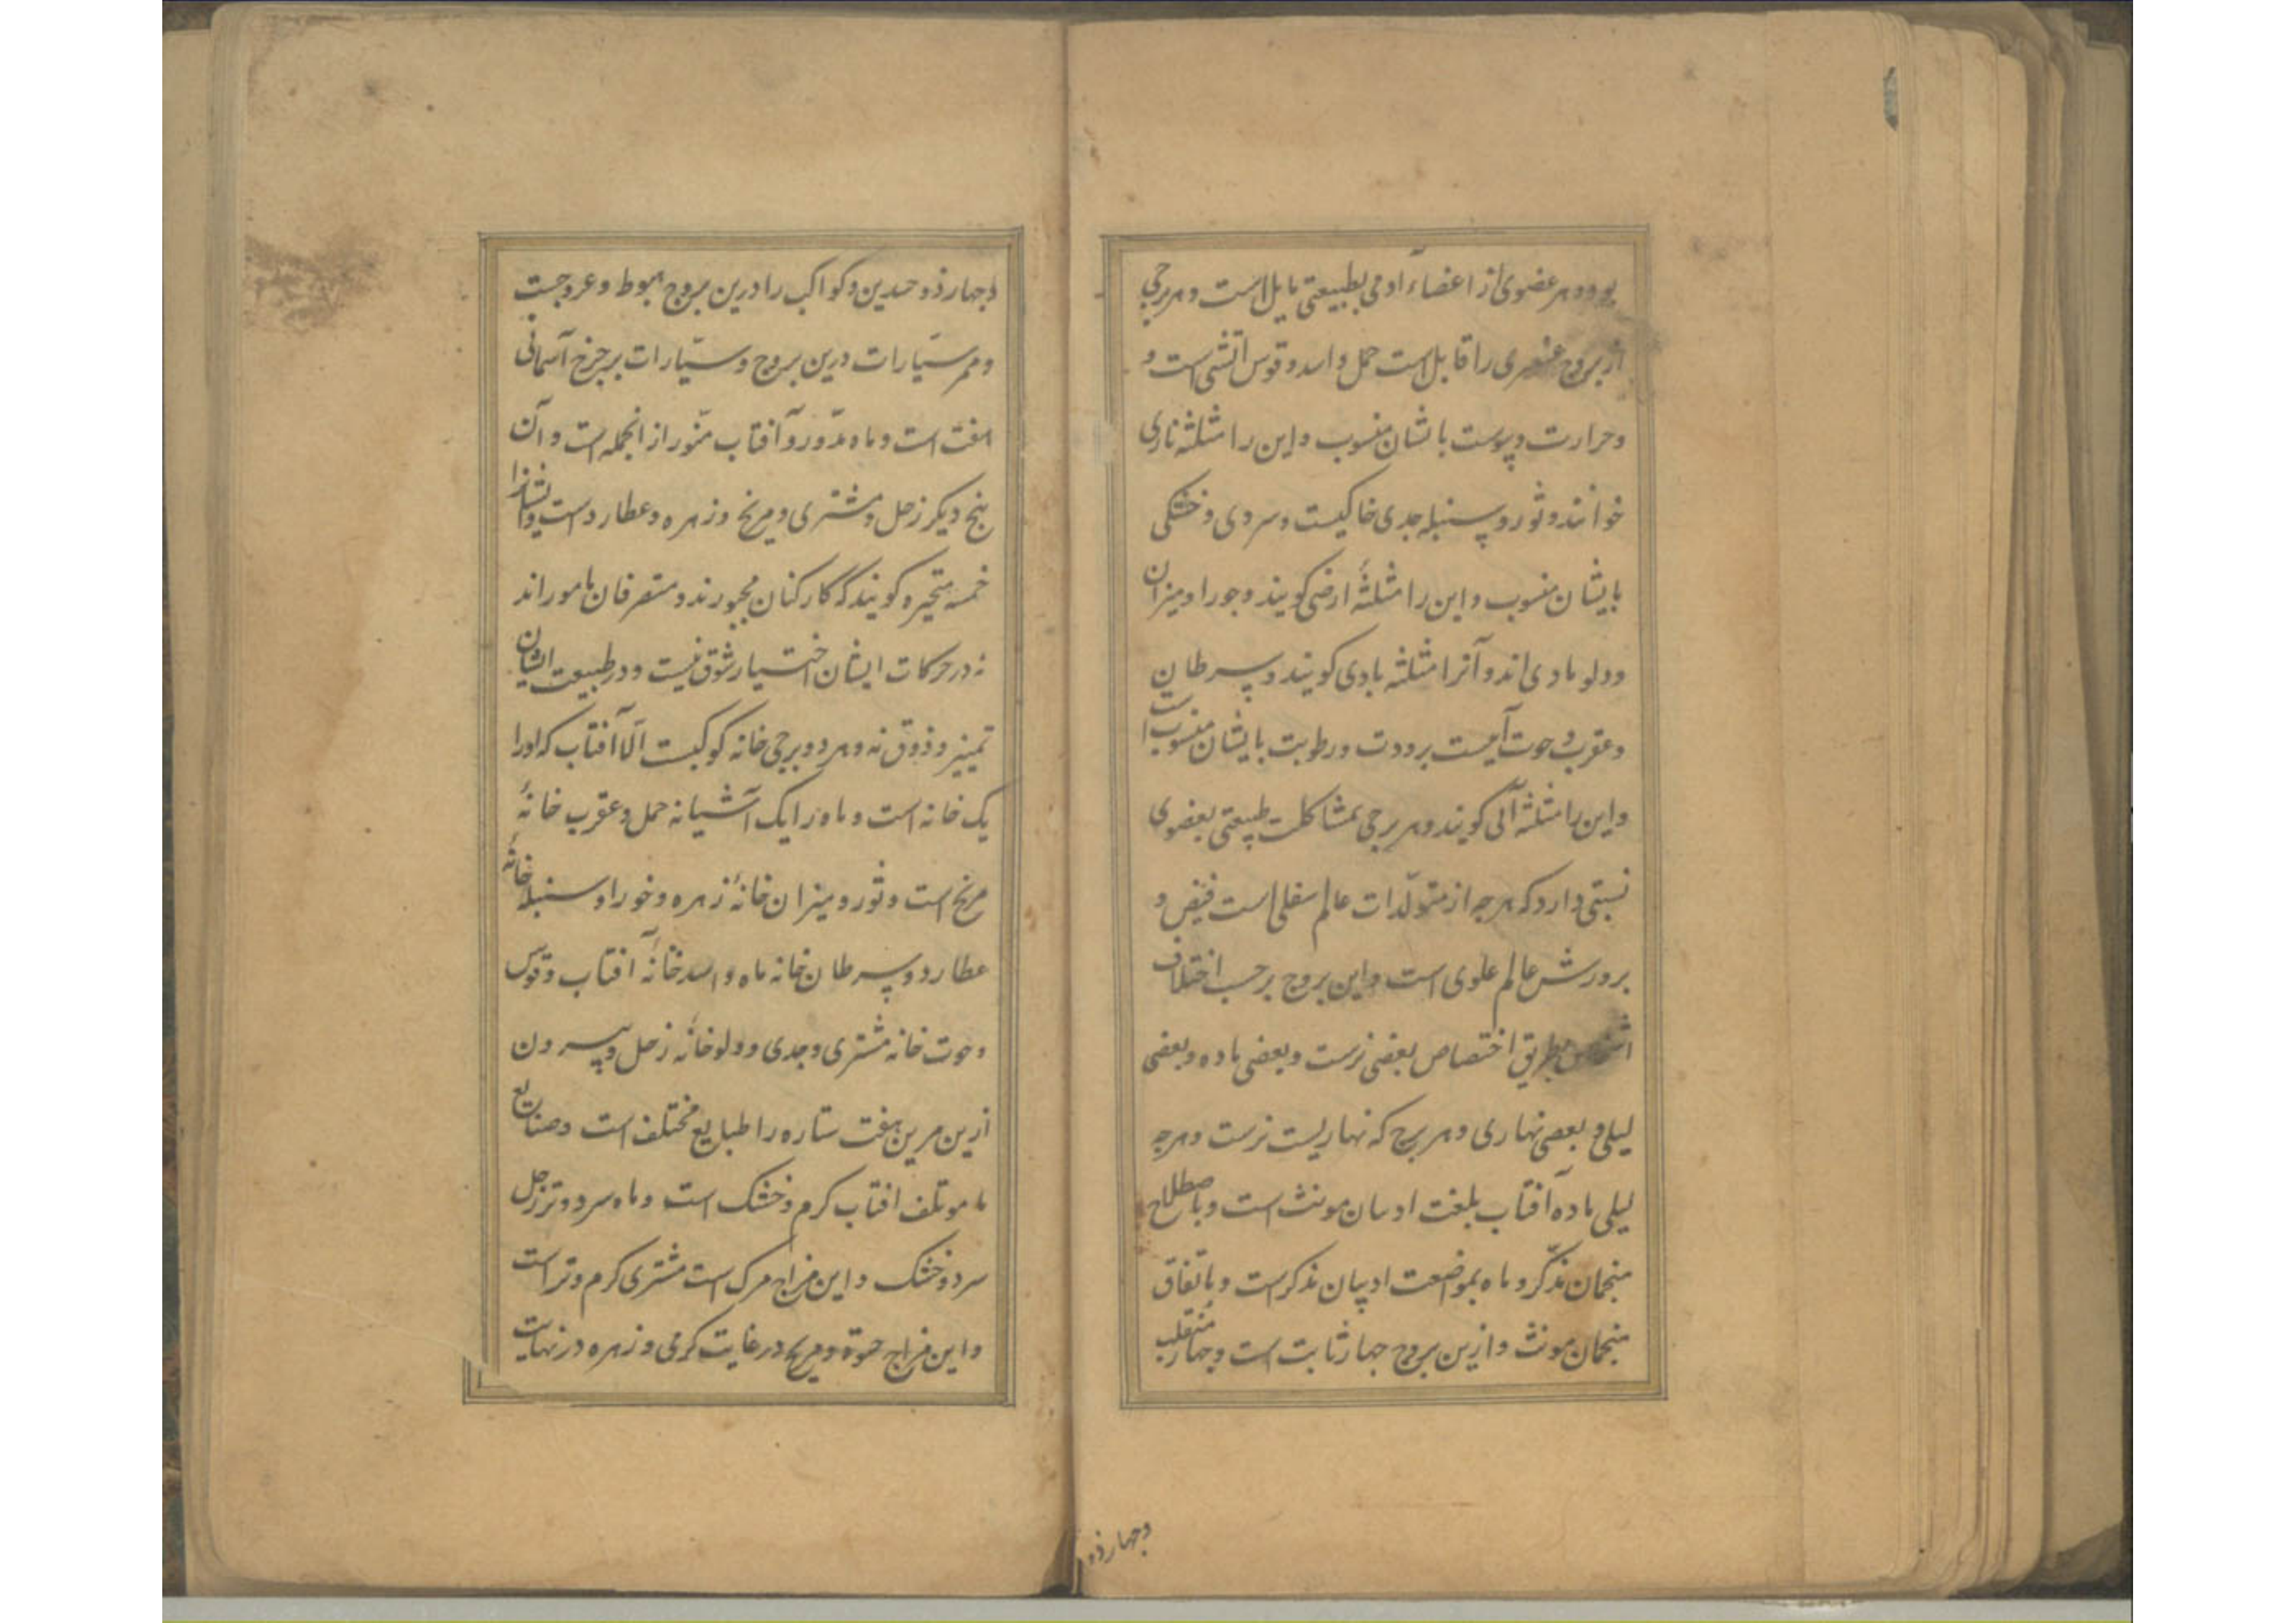 بود و هر عضوی از اعضاء ادمی بطبیعتی مایل است و هر برجی
از بروج عنصری را قابل است حمل و اسد و قوس اتشی است و
و حرارت و یبوست بایشان منسوب و این را مثلثه ناری
خوانند و ثور و سنبله جدی خاکیست و سردی و خشکی
بایشان منسوب و این را مثلثهٔ ارضی کویند و جوزا و میزان
و دلو بادی اند و آنرا مثلثه بادی کویند و سرطان
و عقرب و حوت آبیست برودت و رطوبت بایشان منسوب است
و این را مثلثه آبی کویند و هر برجی بمشاکلت طبیعتی بعضوی
نسبتی دارد که هرچه از متولّدات عالم سفلی است فیض و
برورش عالم علوی است و این بروج بر حسب اختلاف
اشخاص بطریق اختصاص بعضی نرست و بعضی ماده و بعضی
لیلی و بعضی نهاری و هر برج که نهاریست نرست و هرچه
لیلی ماده آفتاب بلغت ادیبان مونث است و باصطلاح
منجمان مذکّر و ماه بمواضعت ادیبان مذکرست و باتفاق
منجمان مونث و ازین بروج جهار ثابت است و جهار منقلب
و جهار ذو
و جهار ذو جسدین و کواکب را درین بروج هبوط و عروجیست
و ممر سیّارات درین بروج و سیّارات بر چرخ آسمانی
هفت است و ماه مدّور و آفتاب منّور از انجمله است و آن
پنج دیکر زحل و مشتری و مریخ و زهره و عطارد است و ایشانرا
خمسه متحیره کویند که کارکنان مجبورند و متصرفان مامور اند
نه در حرکات ایشان اختیار شوق نیست و در طبیعت ایشان
تمییز و ذوق نه و هر دو برجی خانه کوکبیست الّا آفتاب که او را
یک خانه است و ماه را یک آشیانه حمل و عقرب خانهٔ
مریخ است و ثور و میزان خانهٔ زهره و جوزا و سنبله خانهٔ
عطارد و سرطان خانه ماه و اسد خانهٔ آفتاب و قوس
و حوت خانه مشتری و جدی و دلو خانهٔ زحل و بیرون
ازین مرین هفت ستاره را طبایع مختلف است و صنایع
نا موتلف افتاب کرم و خشک است و ماه سرد و تر زحل
سرد و خشک و این مزاج مرک است مشتری کرم و تر است
و این مزاج حیوة و مریخ در غایت کرمی و زهره در نهایت